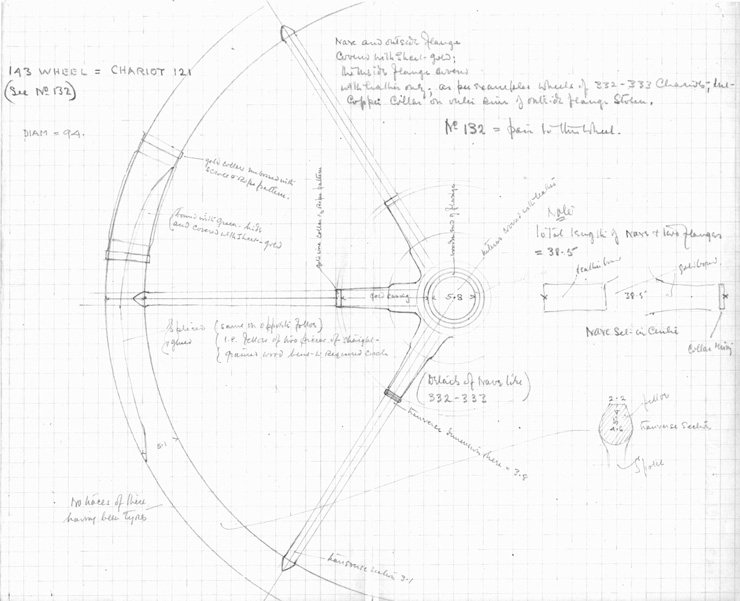 143 WHEEL = CHARIOT 121
(See No 132)
DIAM = 94.
Nave and outside flange
Covered with Sheet-gold;
the inside flange covered
with leather only, as per examples wheels of 332-333 Chariots; the
Copper Collar on outer rim of outside flange Stolen.
No 132 = pair to this wheel.
gold collars embossed with
Scroll & Rope pattern.
bound with green-hide
and covered with Sheet-gold
gold wire collar & Rope pattern
wooden end of flange
covered with leather
gold casing
5.8
Note
Total length of Nave + two flanges
= 38.5
leather bound
gold bound
38.5
Nave Set in Centre
Collar missing
Spliced
& glued
(same on opposite felloe)
i.e. felloe of two pieces of straight-
grained wood bent to required circle
(Details of Nave like
332-333)
transverse dimension here = 3.8
2.2
4.6
felloe
transverse section
Spoke
5.1
No traces of there
having been tyres
transverse section 3.1